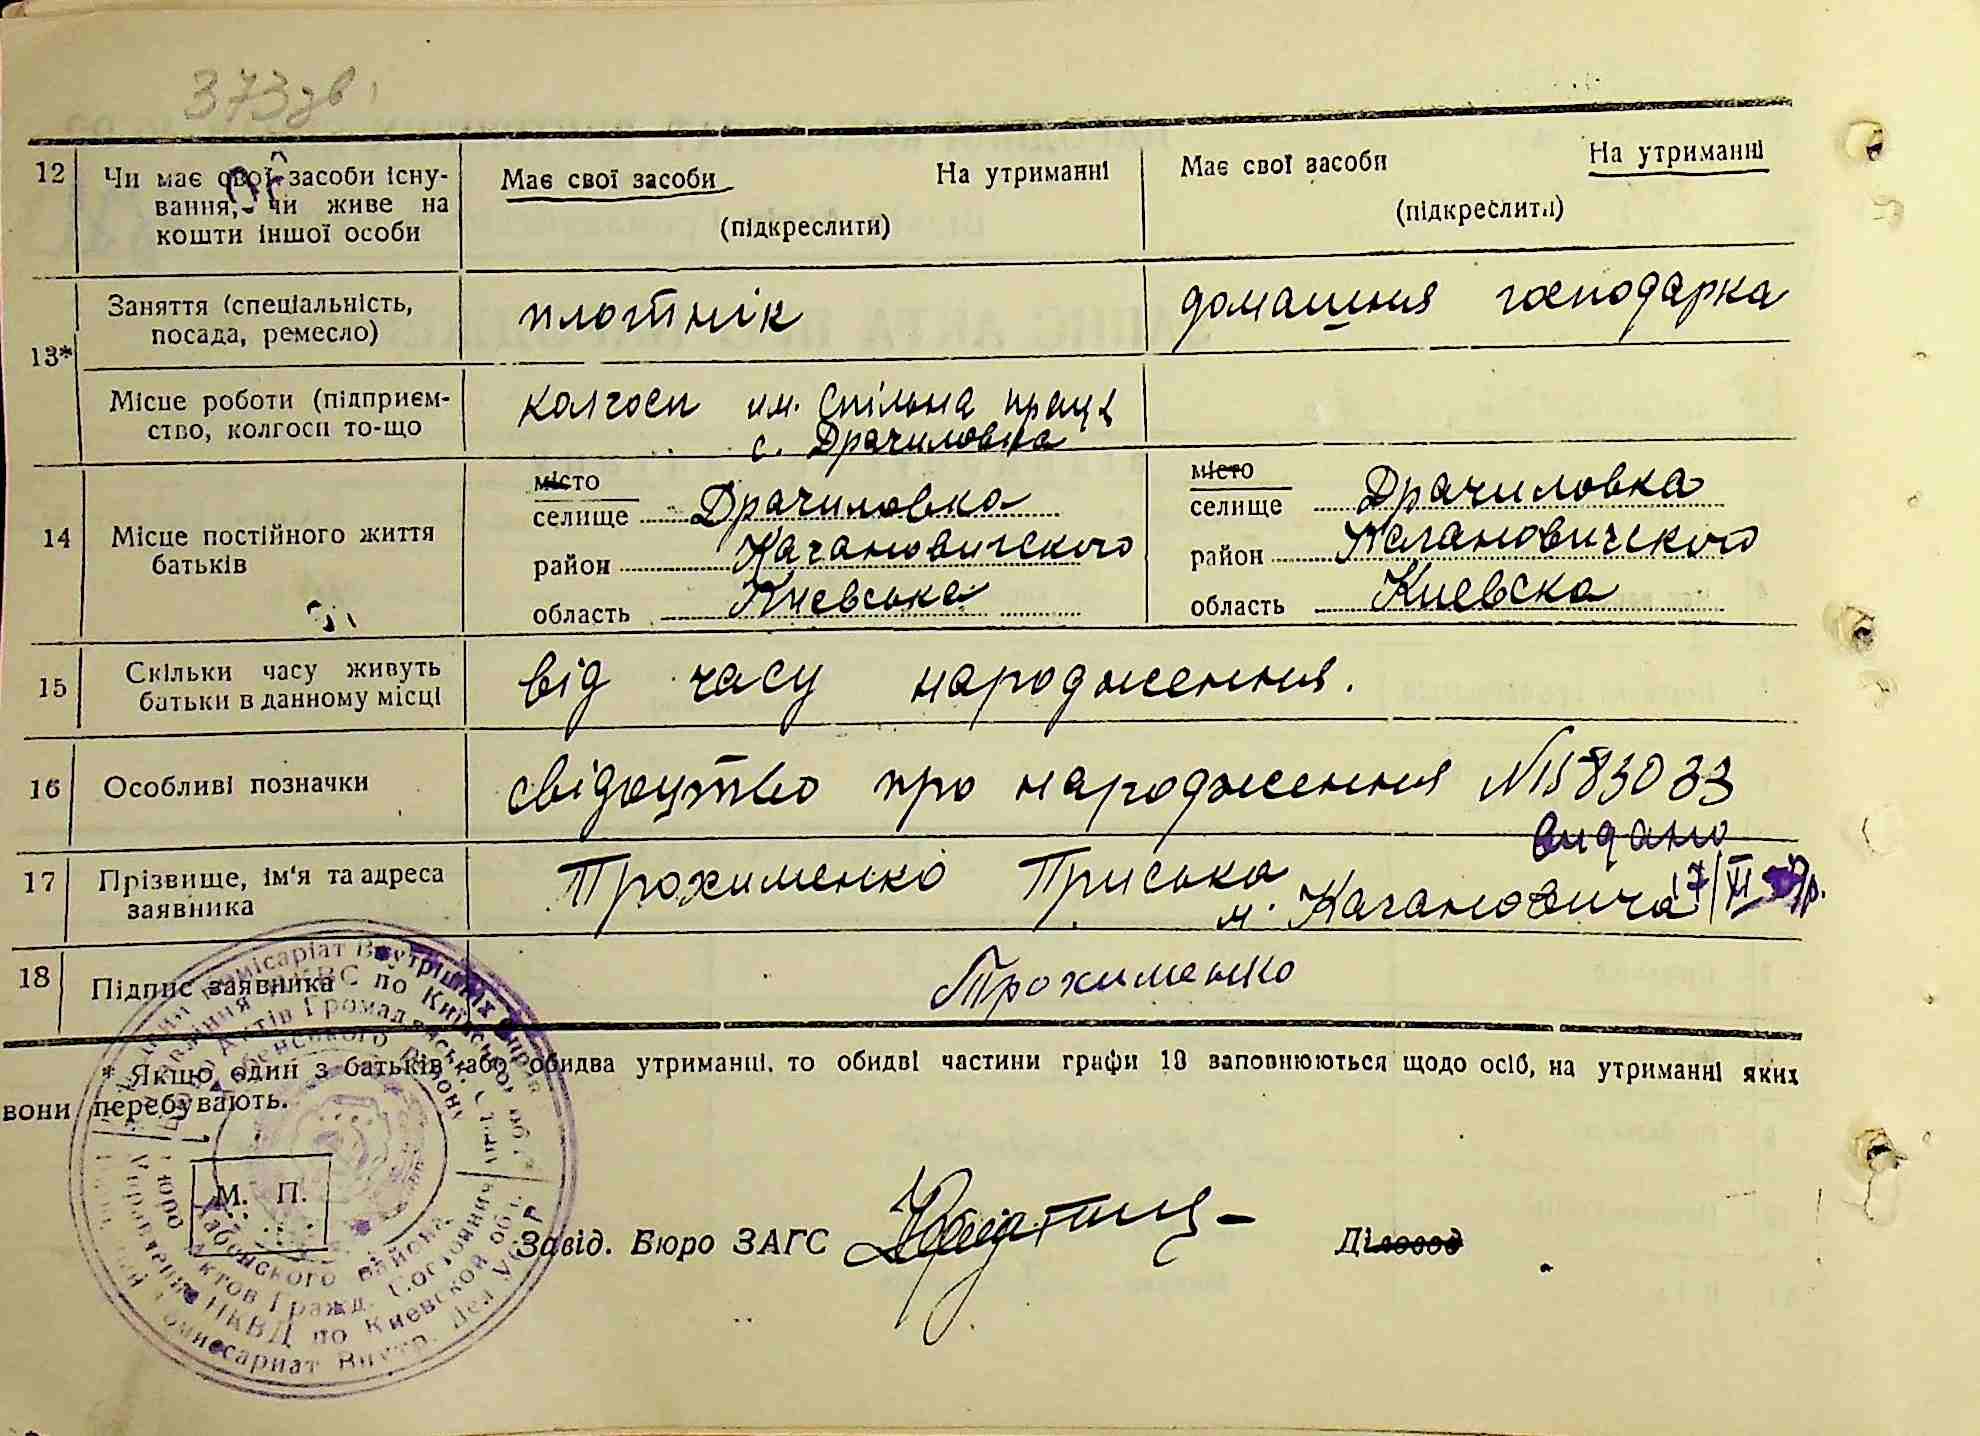 373зв
12 Чи має свої засоби існу- Має свої засоби На утриманні Має свої засоби На утриманні
вання, чи живе на (підкреслити) (підкреслити)
кошти іншої особи
13* Заняття (спеціальність, плотнік домашня господарка
посада, ремесло)
Місце роботи (підприєм- колгосп им. Спільна праця
ство, колгосп то-що с. Драчиловка
14 Місце постійного життя батьків
місто місто
селище Драчиловка селище Драчиловка
район Кагановичского район Кагановичского
область Киевська область Киевска
15 Скільки часу живуть від часу народження.
батьки в данному місці
16 Особливі позначки свідоцтво про народження №1583033
видано
17 Прізвище, ім'я та адреса Прохименко Приська
заявника м. Кагановича 17/VI
18 Підпис заявника Прохименко
* Якщо один з батьків або обидва утриманні, то обидві частини графи 13 заповнюються щодо осіб, на утриманні яких
вони перебувають.
М. П.
Завід. Бюро ЗАГС Діловод
Комісаріат Внутрішніх Справ
НКВС по Київській обл.
Актів Громадянськ. Стан
Бюро Актов Гражд. Состояния
Управления НКВД по Киевской обл.
Комиссариат Внутр. Дел УССР